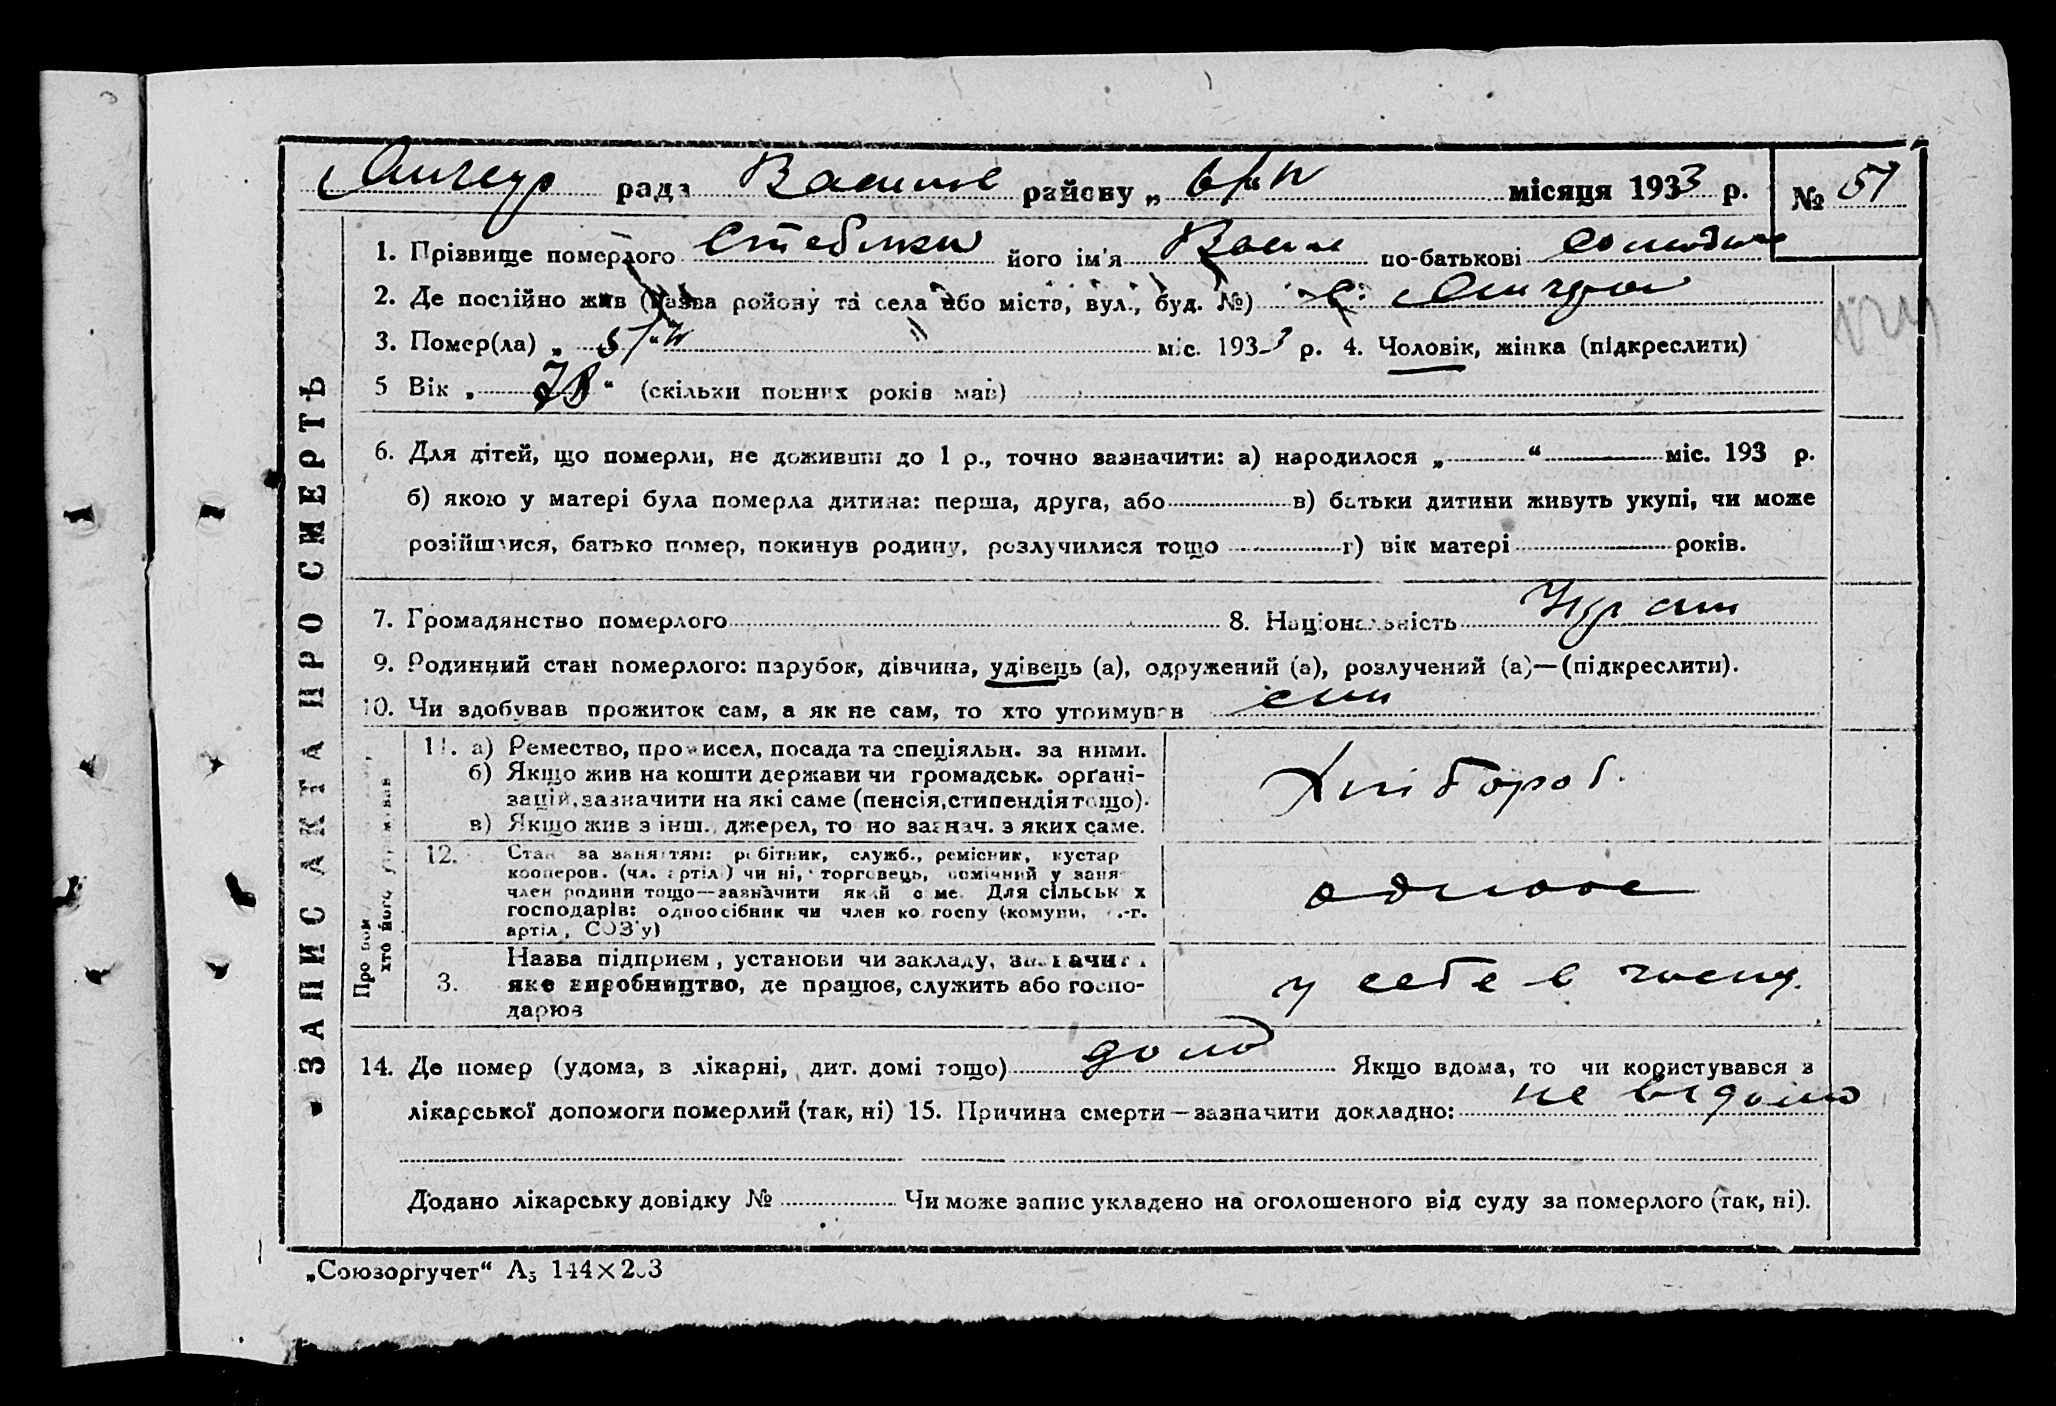 рада Васильк району „ 6/IV місяця 1933 р. № 51
ЗАПИС АКТА ПРО СМЕРТЬ
1. Прізвище померлого його ім'я по-батькові
2. Де постійно жив (назва ройону та села або міста, вул., буд. №) с.
3. Помер(ла) „ 5/IV “ міс. 1933 р. 4. Чоловік, жінка (підкреслити)
5 Вік „ 78 “ (скільки повних років мав)
6. Для дітей, що померли, не доживши до 1 р., точно зазначити: а) народилося „ “ міс. 193 р.
б) якою у матері була померла дитина: перша, друга, або в) батьки дитини живуть укупі, чи може
розійшлися, батько помер, покинув родину, розлучилися тощо г) вік матері років.
7. Громадянство померлого 8. Національність
9. Родинний стан померлого: парубок, дівчина, удівець (а), одружений (а), розлучений (а)—(підкреслити).
10. Чи здобував прожиток сам, а як не сам, то хто утримував сам
11. а) Ремество, промисел, посада та спеціяльн. за ними.
б) Якщо жив на кошти держави чи громадськ. орґані-
зацій, зазначити на які саме (пенсія, стипендія тощо).
в) Якщо жив з інш. джерел, то но зазнач. з яких саме.
Хлібороб.
12. Стан за заняттям: робітник, служб., ремісник, кустар
кооперов. (чл. артіл.) чи ні, торговець, помічний у заня
член родини тощо—зазначити який саме. Для сільських
господарів: одноосібник чи член колгоспу (комуни,
артіл, СОЗ'у)
одноос
3. Назва підприєм, установи чи закладу, зазначит
яке виробництво, де працює, служить або госпо-
дарює
у себе в госпд.
14. Де помер (удома, в лікарні, дит. домі тощо) дома Якщо вдома, то чи користувався з
лікарської допомоги померлий (так, ні) 15. Причина смерти—зазначити докладно: не видомо
Додано лікарську довідку № Чи може запис укладено на оголошеного від суду за померлого (так, ні).
„Союзоргучет“ А5